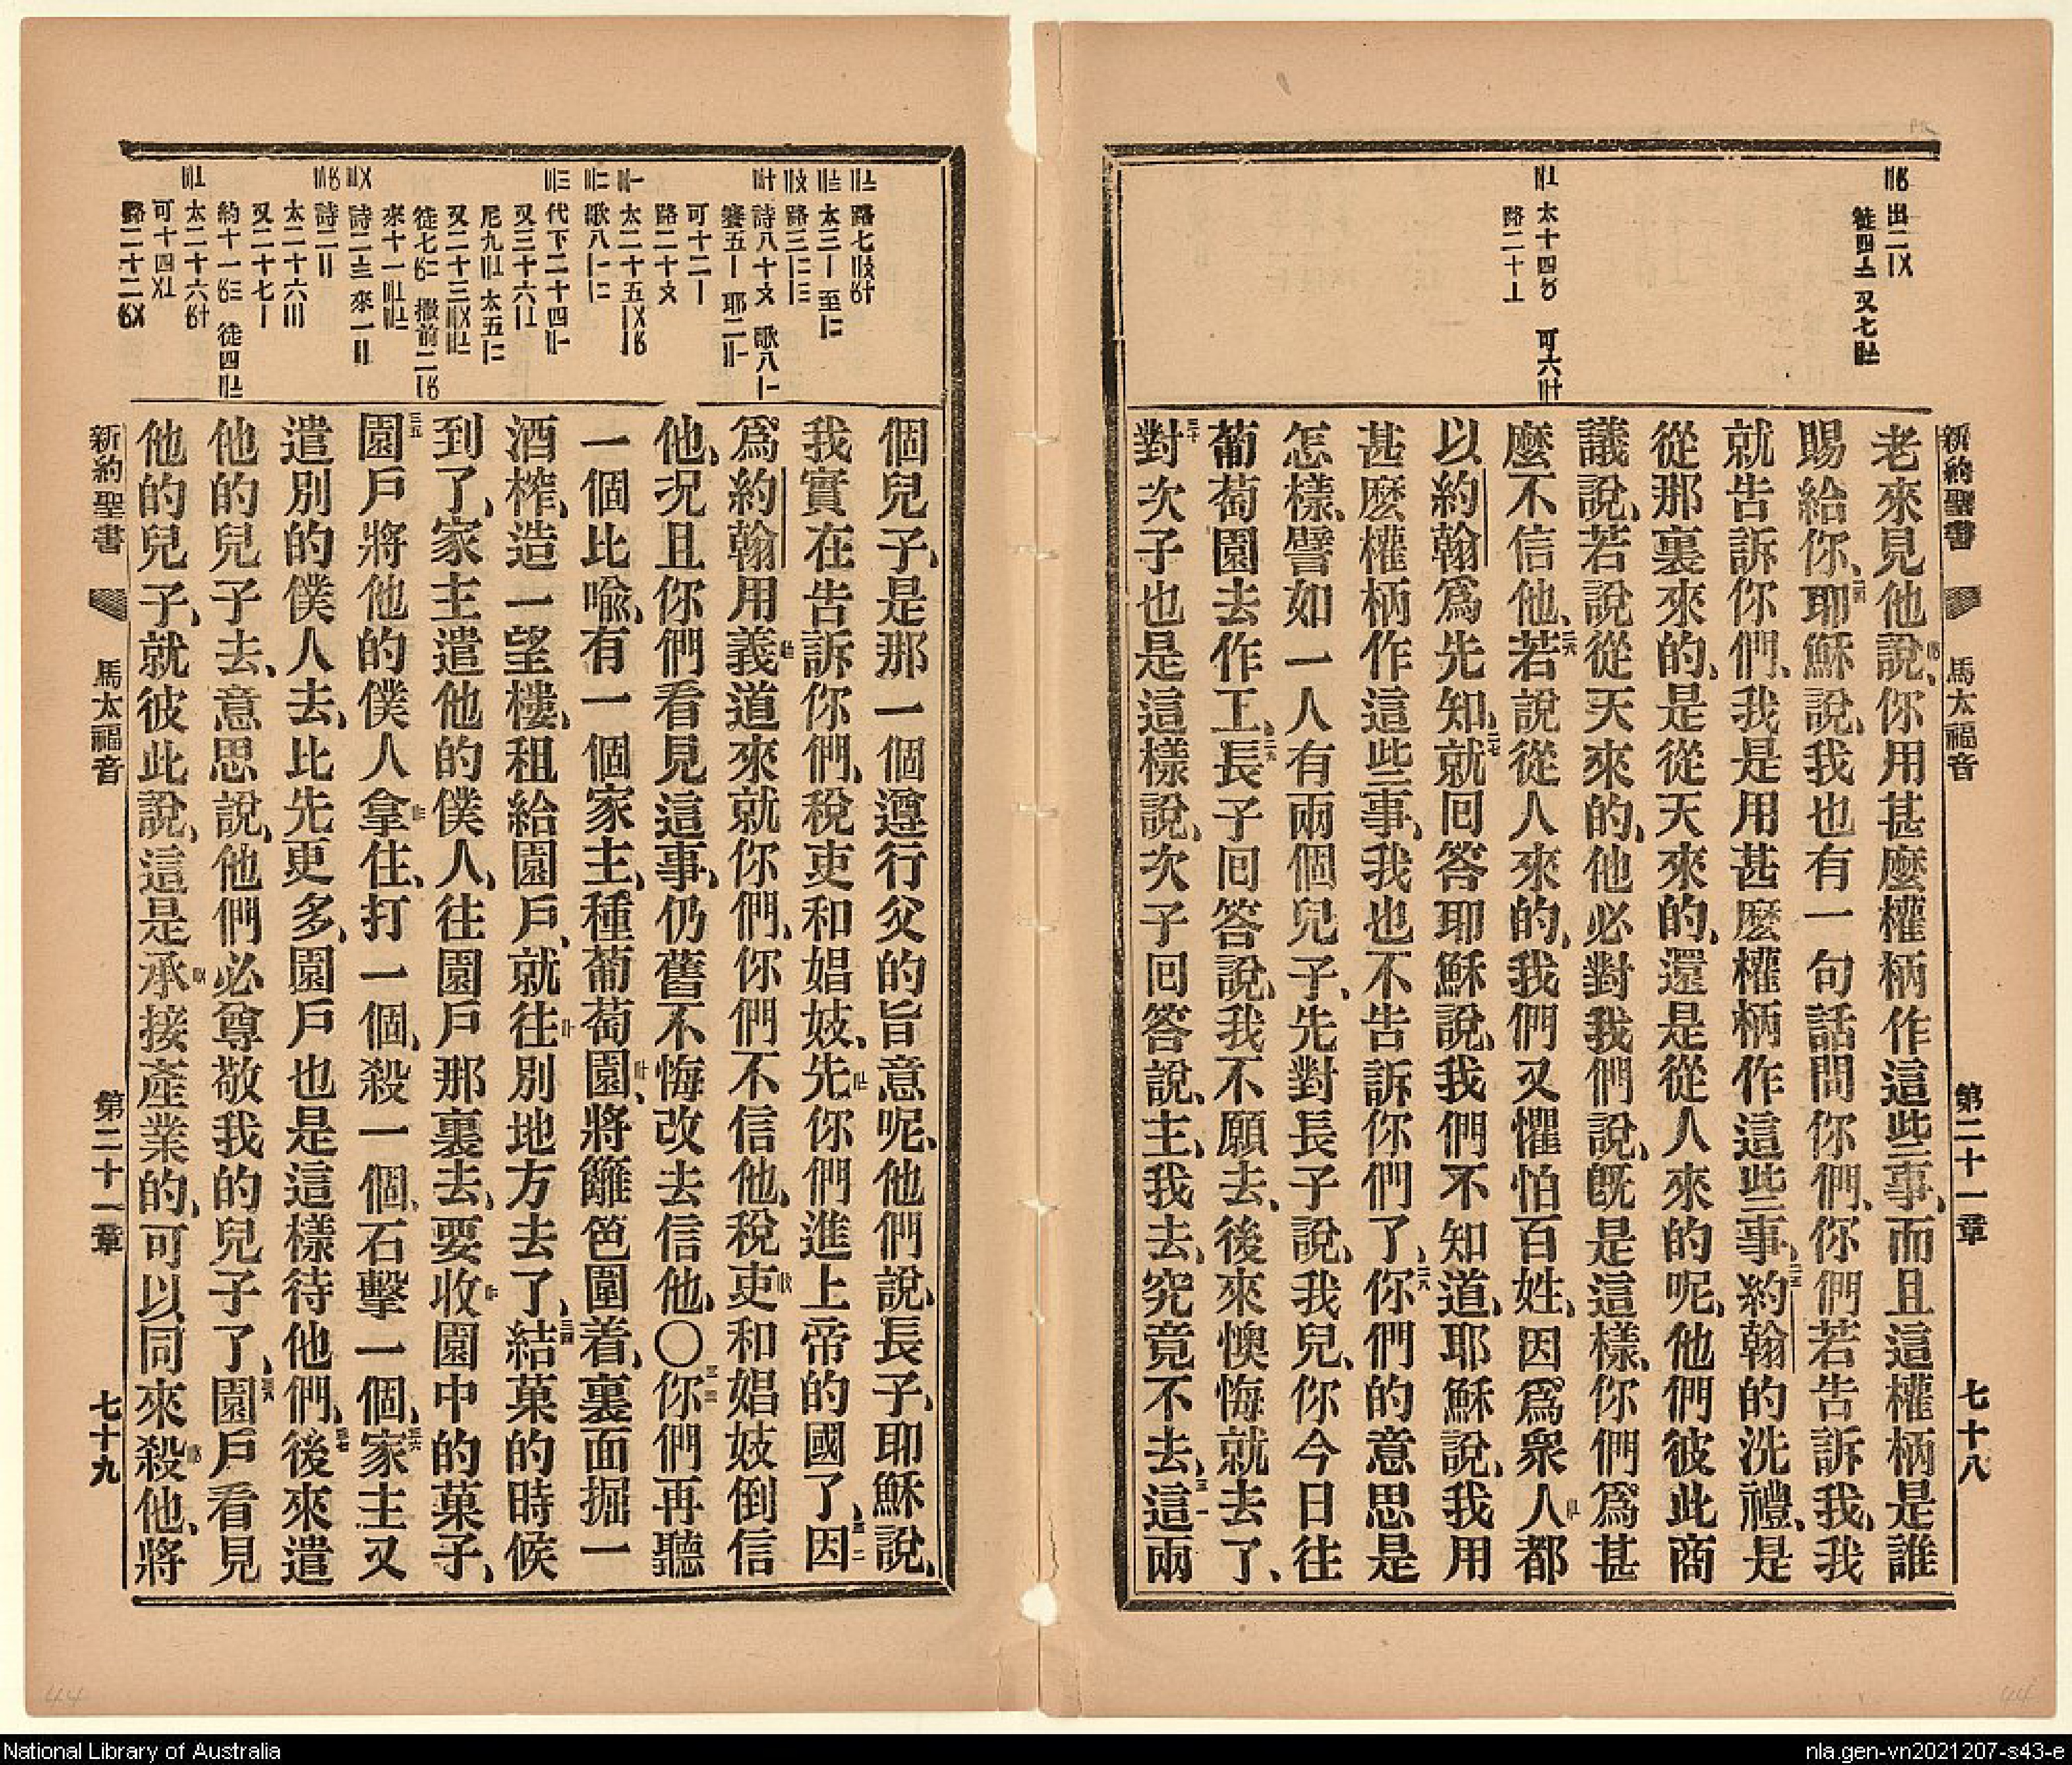 新約聖書
馬太福音
第二十一章
七十八
老來見他說、你用甚麼權柄作這些事、而且這權柄是誰
賜給你、耶穌說、我也有一句話問你們、你們若告訴我、我
就告訴你們、我是用甚麼權柄作這些事、約翰的洗禮、是
從那裏來的、是從天來的、還是從人來的呢、他們彼此商
議說、若說從天來的、他必對我們說、旣是這樣、你們爲甚
麼不信他、若說從人來的、我們又懼怕百姓、因爲衆人都
以約翰爲先知、就回答耶穌說、我們不知道、耶穌說、我用
甚麼權柄作這些事、我也不告訴你們了、你們的意思是
怎樣、譬如一人有兩個兒子、先對長子說、我兒、你今日往
葡萄園去作工、長子回答說、我不願去、後來懊悔就去了、
對次子也是這樣說、次子回答說、主、我去、究竟不去、這兩
個兒子、是那一個遵行父的旨意呢、他們說、長子、耶穌說、
我實在告訴你們、稅吏和娼妓、先你們進上帝的國了、因
爲約翰用義道來就你們、你們不信他、稅吏和娼妓倒信
他、况且你們看見這事、仍舊不悔改去信他、〇你們再聽
一個比喩、有一個家主、種葡萄園、將籬笆圍着、裏面掘一
酒榨、造一望樓、租給園戶、就往別地方去了、結菓的時候
到了、家主遣他的僕人、往園戶那裏去、要收園中的菓子、
園戶將他的僕人拿住、打一個、殺一個、石擊一個、家主又
遣別的僕人去、比先更多、園戶也是這樣待他們、後來遣
他的兒子去、意思說、他們必尊敬我的兒子了、園戶看見
他的兒子、就彼此說、這是承接產業的、可以同來殺他、將
新約聖書
馬太福音
第二十一章
七十九
National Library of Australia
nla.gen-vn2021207-s43-e